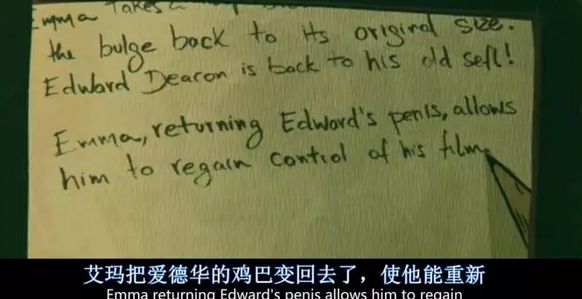 Emma Takes a
the bulge back to its original size.
Edward Deacon is back to his old self!
Emma, returning Edward's penis, allows
him to regain control of his film
艾玛把爱德华的鸡巴变回去了，使他能重新
Emma returning Edward's penis allows him to regain